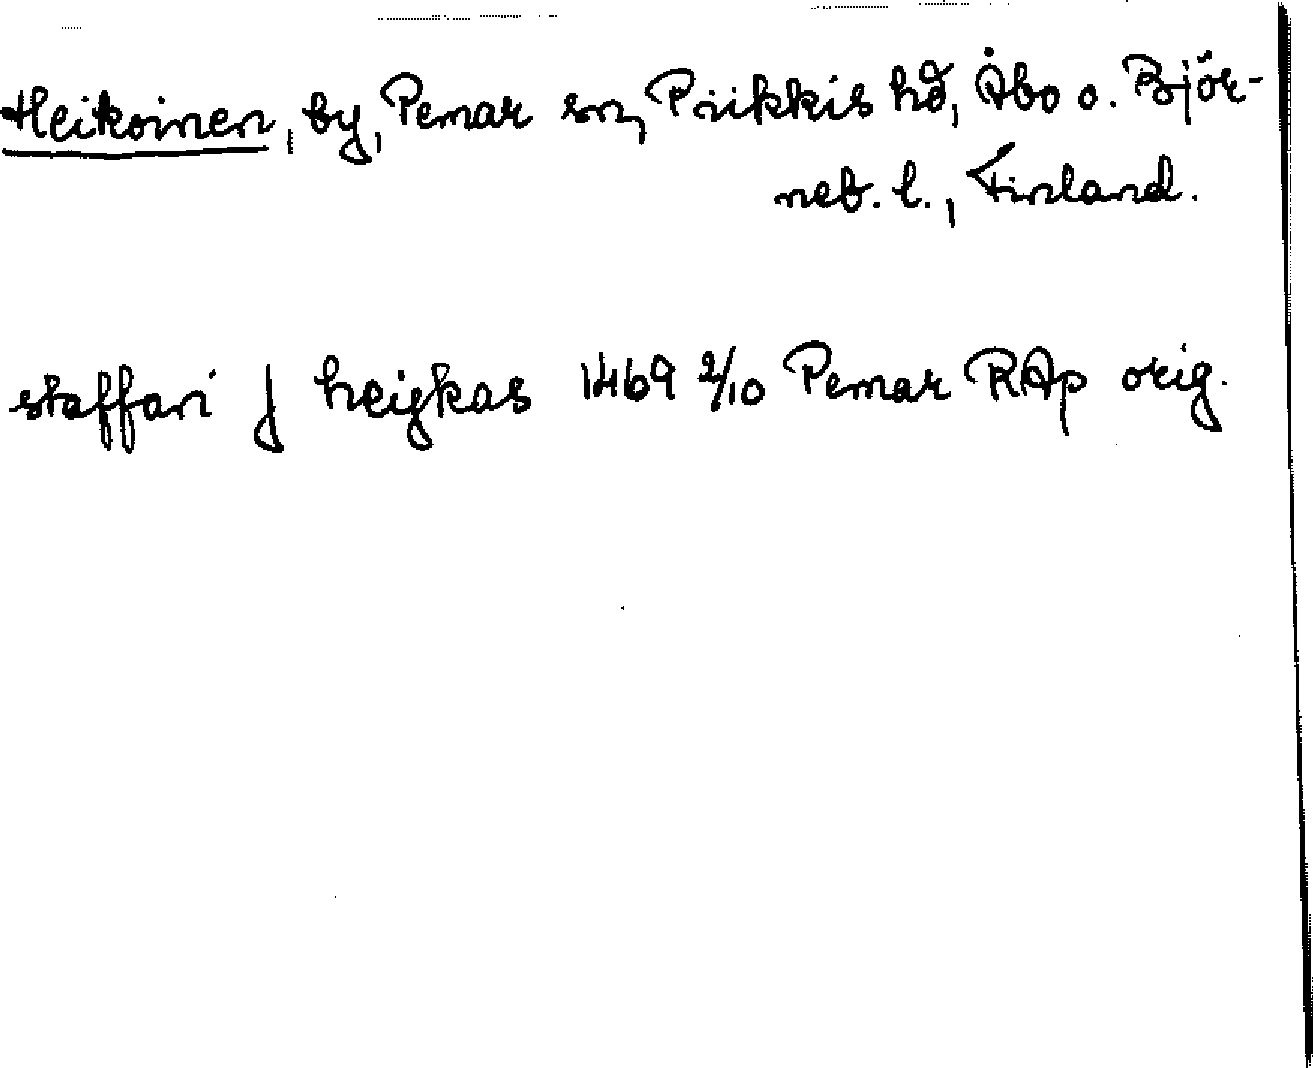 Heikoinen, by, Pemar sn, Piikkis hd, Åbo o. Björ-
neb. l., Finland.
staffan j heigkas 1469 2/10 Pemar RAp orig.